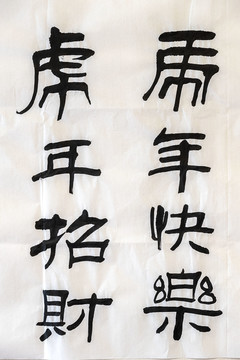 虎年快樂
虎年招財